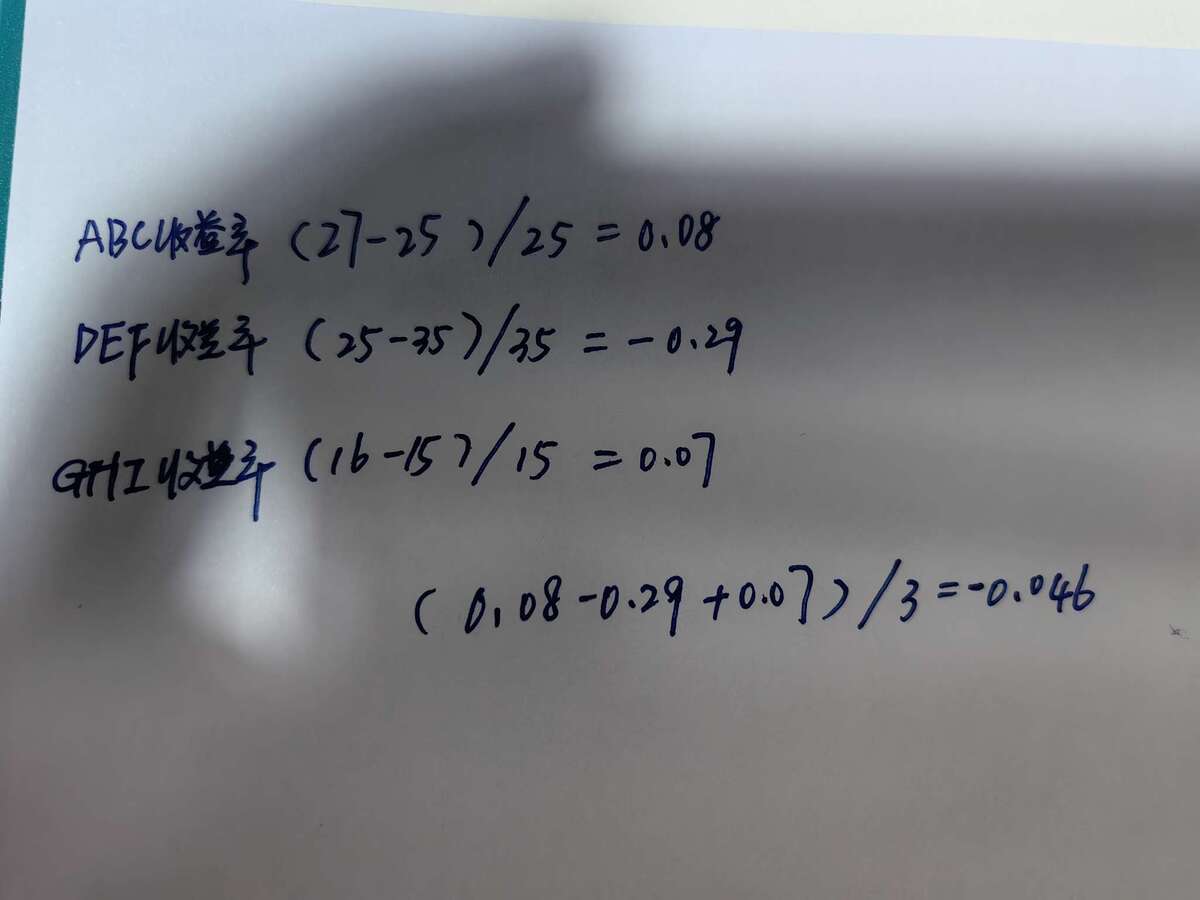 ABC收益率 (27-25)/25 = 0.08
DEF收益率 (25-35)/35 = -0.29
GHI收益率 (16-15)/15 = 0.07
(0.08-0.29+0.07)/3=-0.046